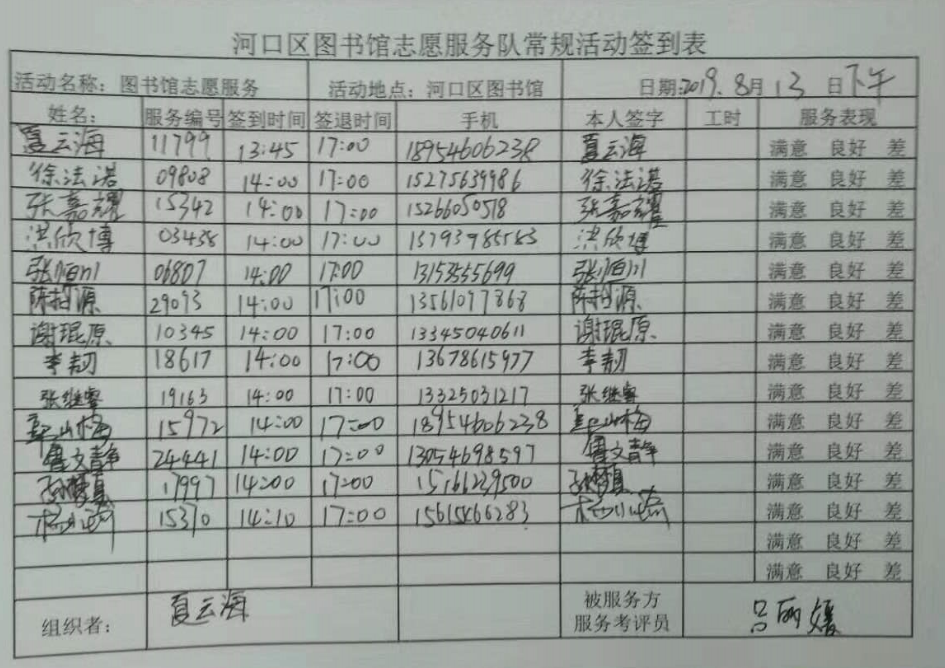 河口区图书馆志愿服务队常规活动签到表
活动名称：图书馆志愿服务 活动地点：河口区图书馆 日期:2019.8月13日下午
姓名： 服务编号 签到时间 签退时间 手机 本人签字 工时 服务表现
夏云海 11799 13:45 17:00 18954606238 夏云海 满意 良好 差
徐法诺 09808 14:00 17:00 15275639986 徐法诺 满意 良好 差
张嘉耀 15342 14:00 17:00 15266050518 张嘉耀 满意 良好 差
洪欣博 03438 14:00 17:00 洪欣博 满意 良好 差
06807 14:00 17:00 13153555699 满意 良好 差
陈柏源 29093 14:00 17:00 13561097868 陈柏源 满意 良好 差
谢琨原 10345 14:00 17:00 13345040611 谢琨原 满意 良好 差
李韧 18617 14:00 17:00 13678615977 李韧 满意 良好 差
张继睿 19163 14:00 17:00 13325031217 张继睿 满意 良好 差
15972 14:00 17:00 18954606238 满意 良好 差
鲁文静 24441 14:00 17:00 13054698597 鲁文静 满意 良好 差
17997 14:00 17:00 15166239500 满意 良好 差
15370 14:10 17:00 15615466283 满意 良好 差
满意 良好 差
满意 良好 差
组织者： 夏云海 被服务方 吕丽媛
服务考评员